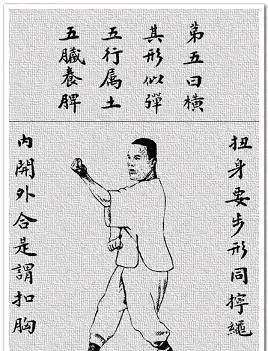 第五曰橫
其形似彈
五行属土
五臟養脾
扭身要步形同擰繩
內開外合是謂扣胸